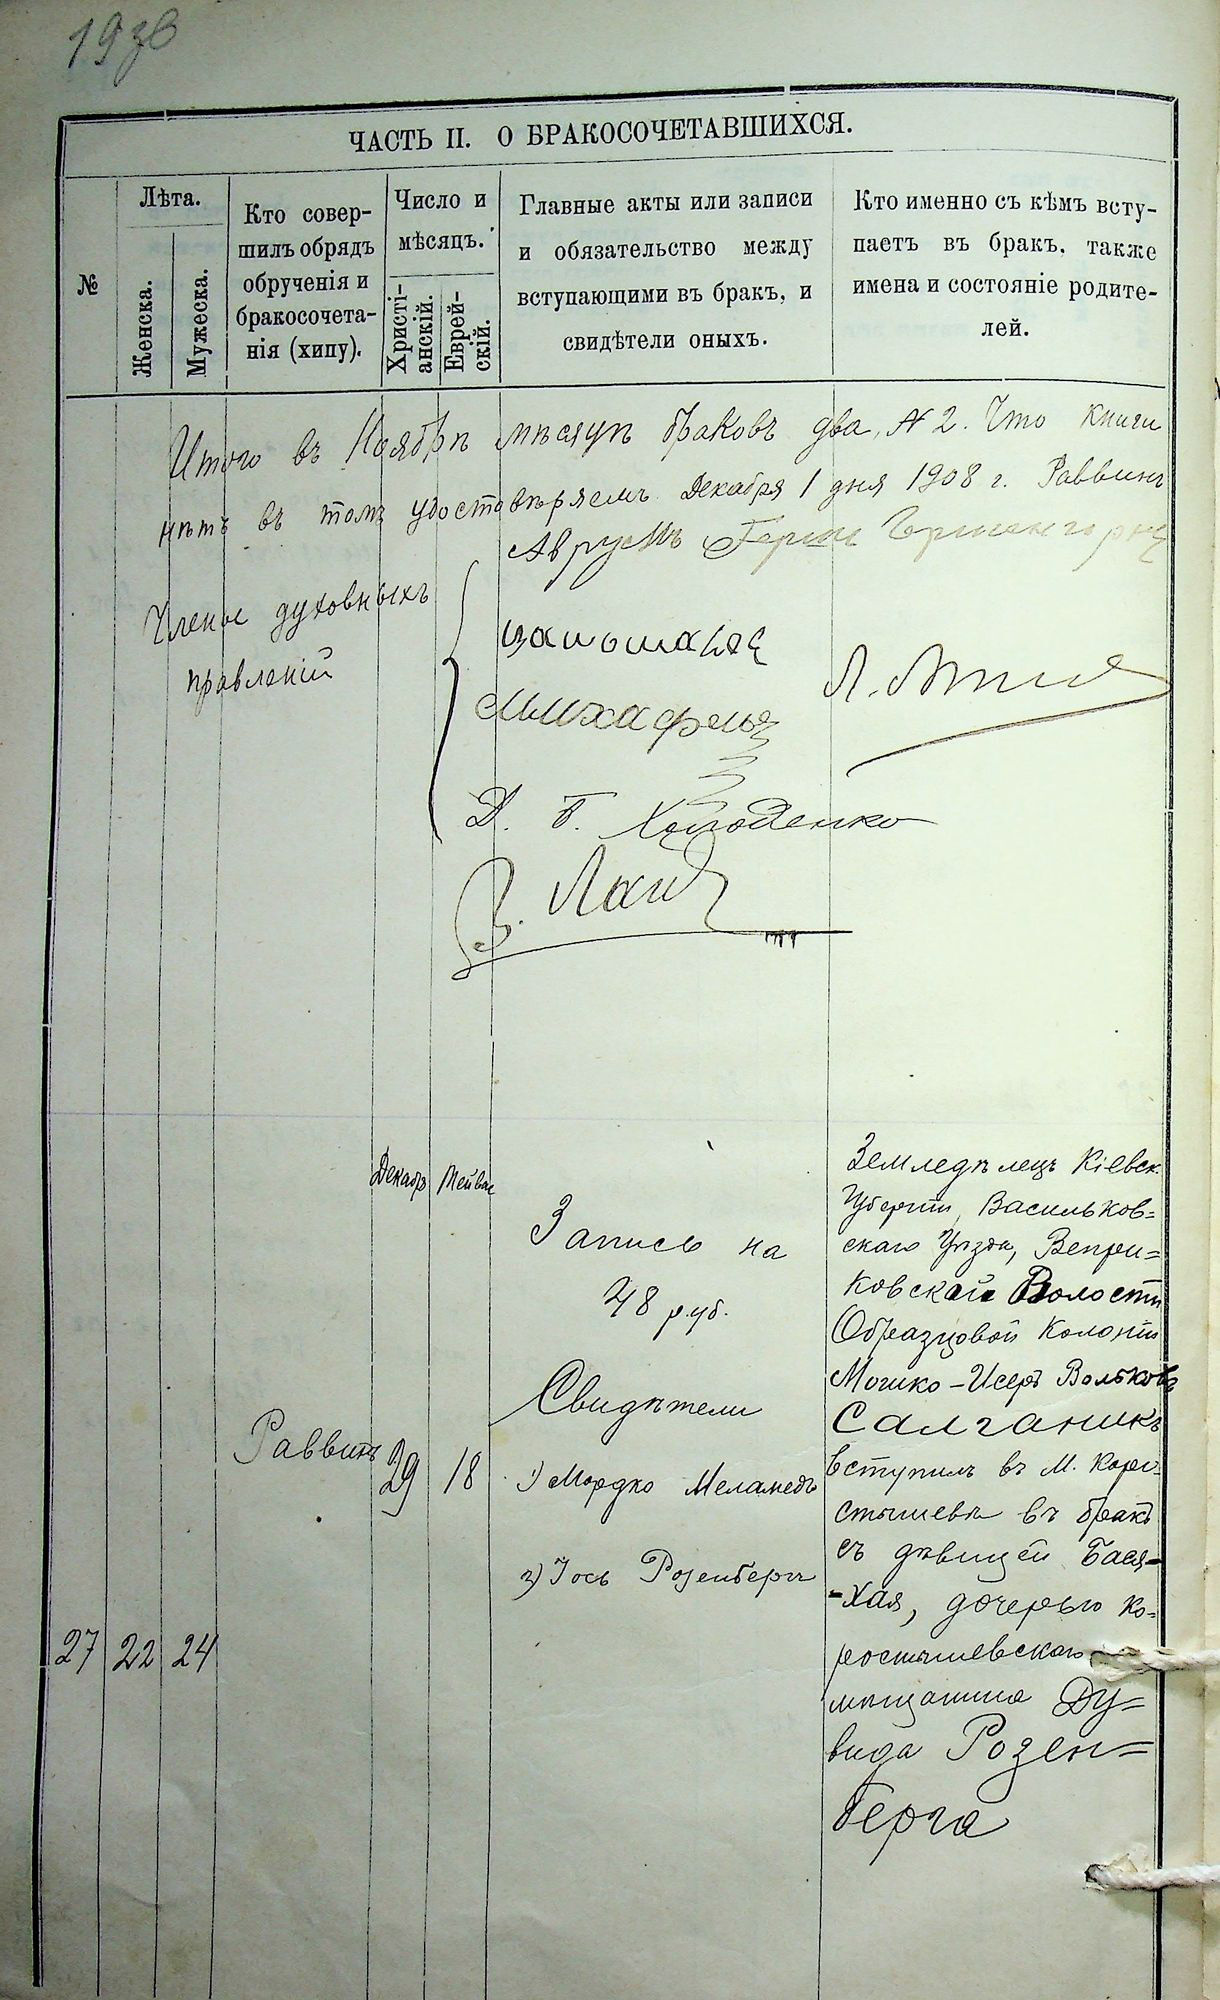 193об
ЧАСТЬ II. О БРАКОСОЧЕТАВШИХСЯ.
№
Лѣта.
Женска.
Мужеска.
Кто совер-
шилъ обрядъ
обрученія и
бракосочета-
нія (хипу).
Число и
мѣсяцъ.
Христі-
анскій.
Еврей-
скій.
Главные акты или записи
и обязательство между
вступающими въ бракъ, и
свидѣтели оныхъ.
Кто именно съ кѣмъ всту-
паетъ въ бракъ, также
имена и состояніе родите-
лей.
Итого въ Ноябрѣ мѣсяцѣ браковъ два, № 2. Что книги
въ томъ удостовѣряемъ Декабря 1 дня 1908 г. Раввинъ
Аврумъ Герш
Члены духовныхъ
правленій
Д. Б. Холоденко
Декабр
Запись на
48 руб.
Свидѣтели
1) Мордко Меламедъ
2) Іось Розенбергъ
27
22
24
Раввинъ
29
18
Земледѣлецъ Кіевск.
Губерніи, Васильков=
скаго Уѣзда, Вепри=
ковской Волости
Образцовой Колоніи
Мошко-Исеръ Вольковъ
Салганикъ
вступилъ въ М. Коро-
стышевѣ въ бракъ
съ дѣвицей Бася-
-Хая, дочерью Ко=
ростышевскаго
мѣщанина Ду=
вида Розен=
берга